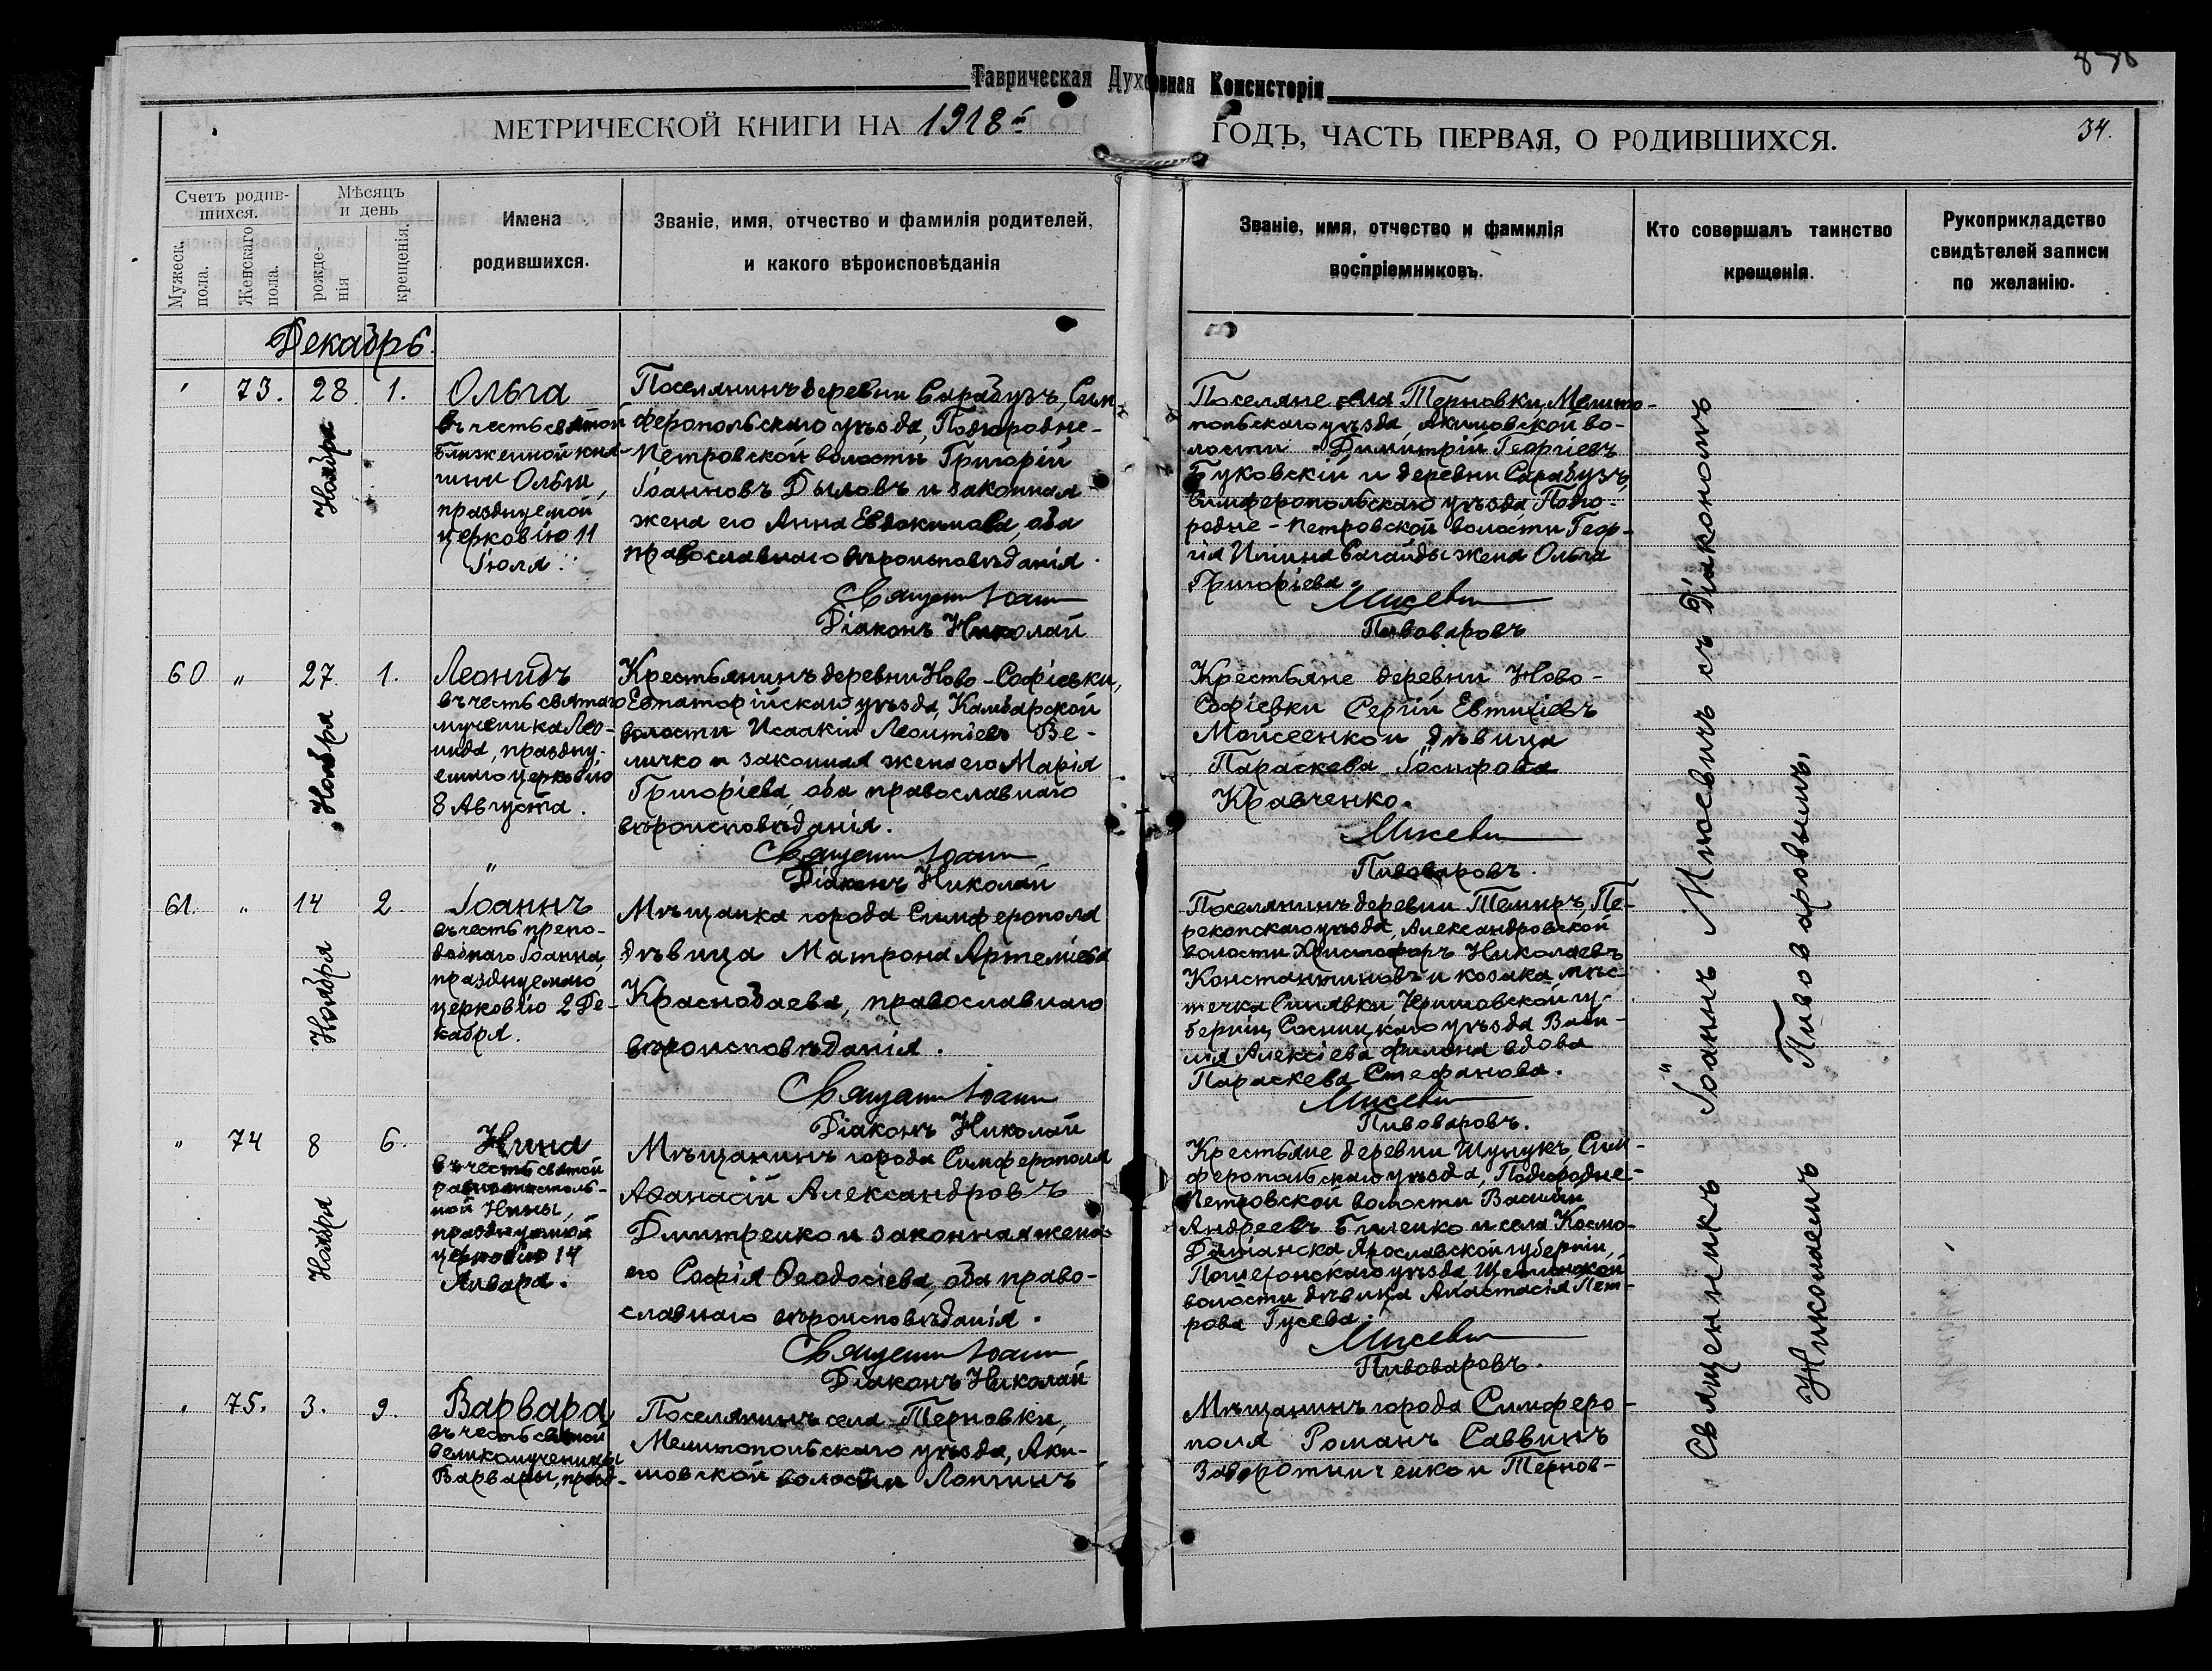 Таврическая Духовная Консисторія
МЕТРИЧЕСКОЙ КНИГИ НА 1918 й
ГОДЪ, ЧАСТЬ ПЕРВАЯ, О РОДИВШИХСЯ.
34.
Счетъ родив-
шихся.
Мужеск.
пола.
Женскаго
пола.
Мѣсяцъ
и день
рожде-
нія
крещенія.
Имена
родившихся.
Званіе, имя, отчество и фамилія родителей,
и какого вѣроисповѣданія
Званіе, имя, отчество и фамилія
воспріемниковъ.
Кто совершалъ таинство
крещенія.
Рукоприкладство
свидѣтелей записи
по желанію.
Декабрь
73. 28 1.
Ноября
Ольга
въ честь святой
блаженной кня-
гини Ольги,
празднуемой
церковію 11
Іюля.
Поселянинъ деревни Сарабузъ, Сим
феропольскаго уѣзда, Подгородне-
Петровской волости Григорій
Іоанновъ Дыловъ и законная
жена его Анна Евдокимова, оба
православнаго вѣроисповѣданія.
Священ Іоанн
Діаконъ Николай
Поселяне села Терновки, Мелито-
польскаго уѣзда, Акимовской во-
лости Димитрій Георгіевъ
Буковскій и деревни Сарабузъ,
Симферопольскаго уѣзда Подго-
родне-Петровской волости Геор-
гія Ильина Сагайды жена Ольга
Григоріева.
Мисевич
Пивоваровъ
60 " 27 1.
Ноября
Леонидъ
въ честь святаго
мученика Лео-
нида, праздну-
емаго церковію
8 Августа.
Крестьянинъ деревни Ново-Софіевки,
Евпаторійскаго уѣзда, Камбарской
волости Исаакій Леонтіевъ Ве-
личко и законная жена его Марія
Григоріева, оба православнаго
вѣроисповѣданія.
Священ Іоанн
Діаконъ Николай
Крестьяне деревни Ново-
Софіевки Сергій Евтихіевъ
Моисеенко и дѣвица
Параскева Іосифова
Кравченко.
Мисевич
Пивоваровъ.
61. " 14 2.
Ноября
Іоаннъ
въ честь препо-
добнаго Іоанна,
празднуемаго
церковію 2 Де-
кабря.
Мѣщанка города Симферополя
дѣвица Матрона Артеміева
Краснобаева, православнаго
вѣроисповѣданія.
Священ Іоанн
Діаконъ Николай
Поселянинъ деревни Темиръ, Пе-
рекопскаго уѣзда, Александровской
волости Христофоръ Николаевъ
Константиновъ и козака мѣс-
течка Синявки, Черниговской гу-
берніи, Сосницкаго уѣзда Васи-
лія Алексіева Филона вдова
Параскева Стефанова.
Мисевич
Пивоваровъ.
" 74 8 6.
Ноября
Нина
въ честь святой
равноапостоль-
ной Нины,
празднуемой
церковію 14
Января.
Мѣщанинъ города Симферополя
Аѳанасій Александровъ
Дмитренко и законная жена
его Софія Ѳеодосіева, оба право-
славнаго вѣроисповѣданія.
Священ Іоанн
Діаконъ Николай
Крестьяне деревни Шунукъ, Сим-
феропольскаго уѣзда, Подгородне-
Петровской волости Василій
Андреевъ Биленко и села Космо-
Даміанска Ярославской губерніи,
Пошехонскаго уѣзда
волости дѣвица Анастасія Пет-
рова Гусева.
Мисевич
Пивоваровъ.
" 75. 3. 9.
Варвара
въ честь святой
великомученицы
Варвары, празд-
Поселянинъ села Терновки,
Мелитопольскаго уѣзда, Аки-
мовской волости Логгинъ
Мѣщанинъ города Симферо-
поля Романъ Саввинъ
Заворотинченко и Тернов-
Священникъ Іоаннъ Мисевичъ съ Діакономъ
Николаемъ Пивоваровымъ.